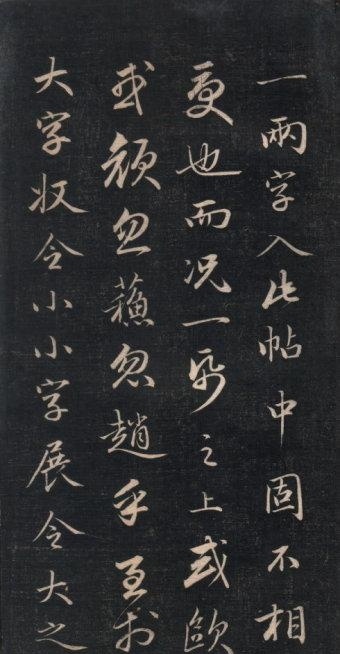 一兩字入此帖中固不相
更也而况一飛之上或歐
或顔忽蘇忽趙乎至於
大字收令小小字展令大之